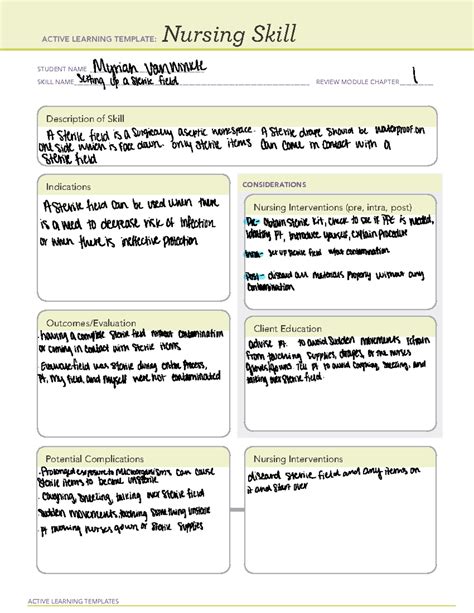 ACTIVE LEARNING TEMPLATE: Nursing Skill
STUDENT NAME Myriah VanWinkle
SKILL NAME Setting up a sterile field REVIEW MODULE CHAPTER 1
Description of Skill
A sterile field is a surgically aseptic workspace. A sterile drape should be waterproof on
one side which is face down. only sterile items can come in contact with a
sterile field
Indications
A sterile field can be used when there
is a need to decrease risk of infection
or when there is ineffective protection
CONSIDERATIONS
Nursing Interventions (pre, intra, post)
Pre- obtain sterile kit, check to see if PPE is needed,
identify pt, introduce yourself, explain procedure
Intra- set up sterile field without contamination
Post- discard all materials properly without any
contamination
Outcomes/Evaluation
· having a complete sterile field without contamination
or coming in contact with sterile items
Evaluate field was sterile during entire process,
pt, my field, and myself were not contaminated
Client Education
advise pt. to avoid sudden movements, refrain
from touching supplies, drapes, or the nurses
gloves/gown. Tell pt to avoid coughing, sneezing, and
talking over sterile field.
Potential Complications
· Prolonged exposure to microorganisms can cause
sterile items to become unsterile
· Coughing, sneezing, talking over sterile field
sudden movements, touching something unsterile
· pt touching nurses gown or sterile supplies
Nursing Interventions
discard sterile field and any items on
it and start over
ACTIVE LEARNING TEMPLATES